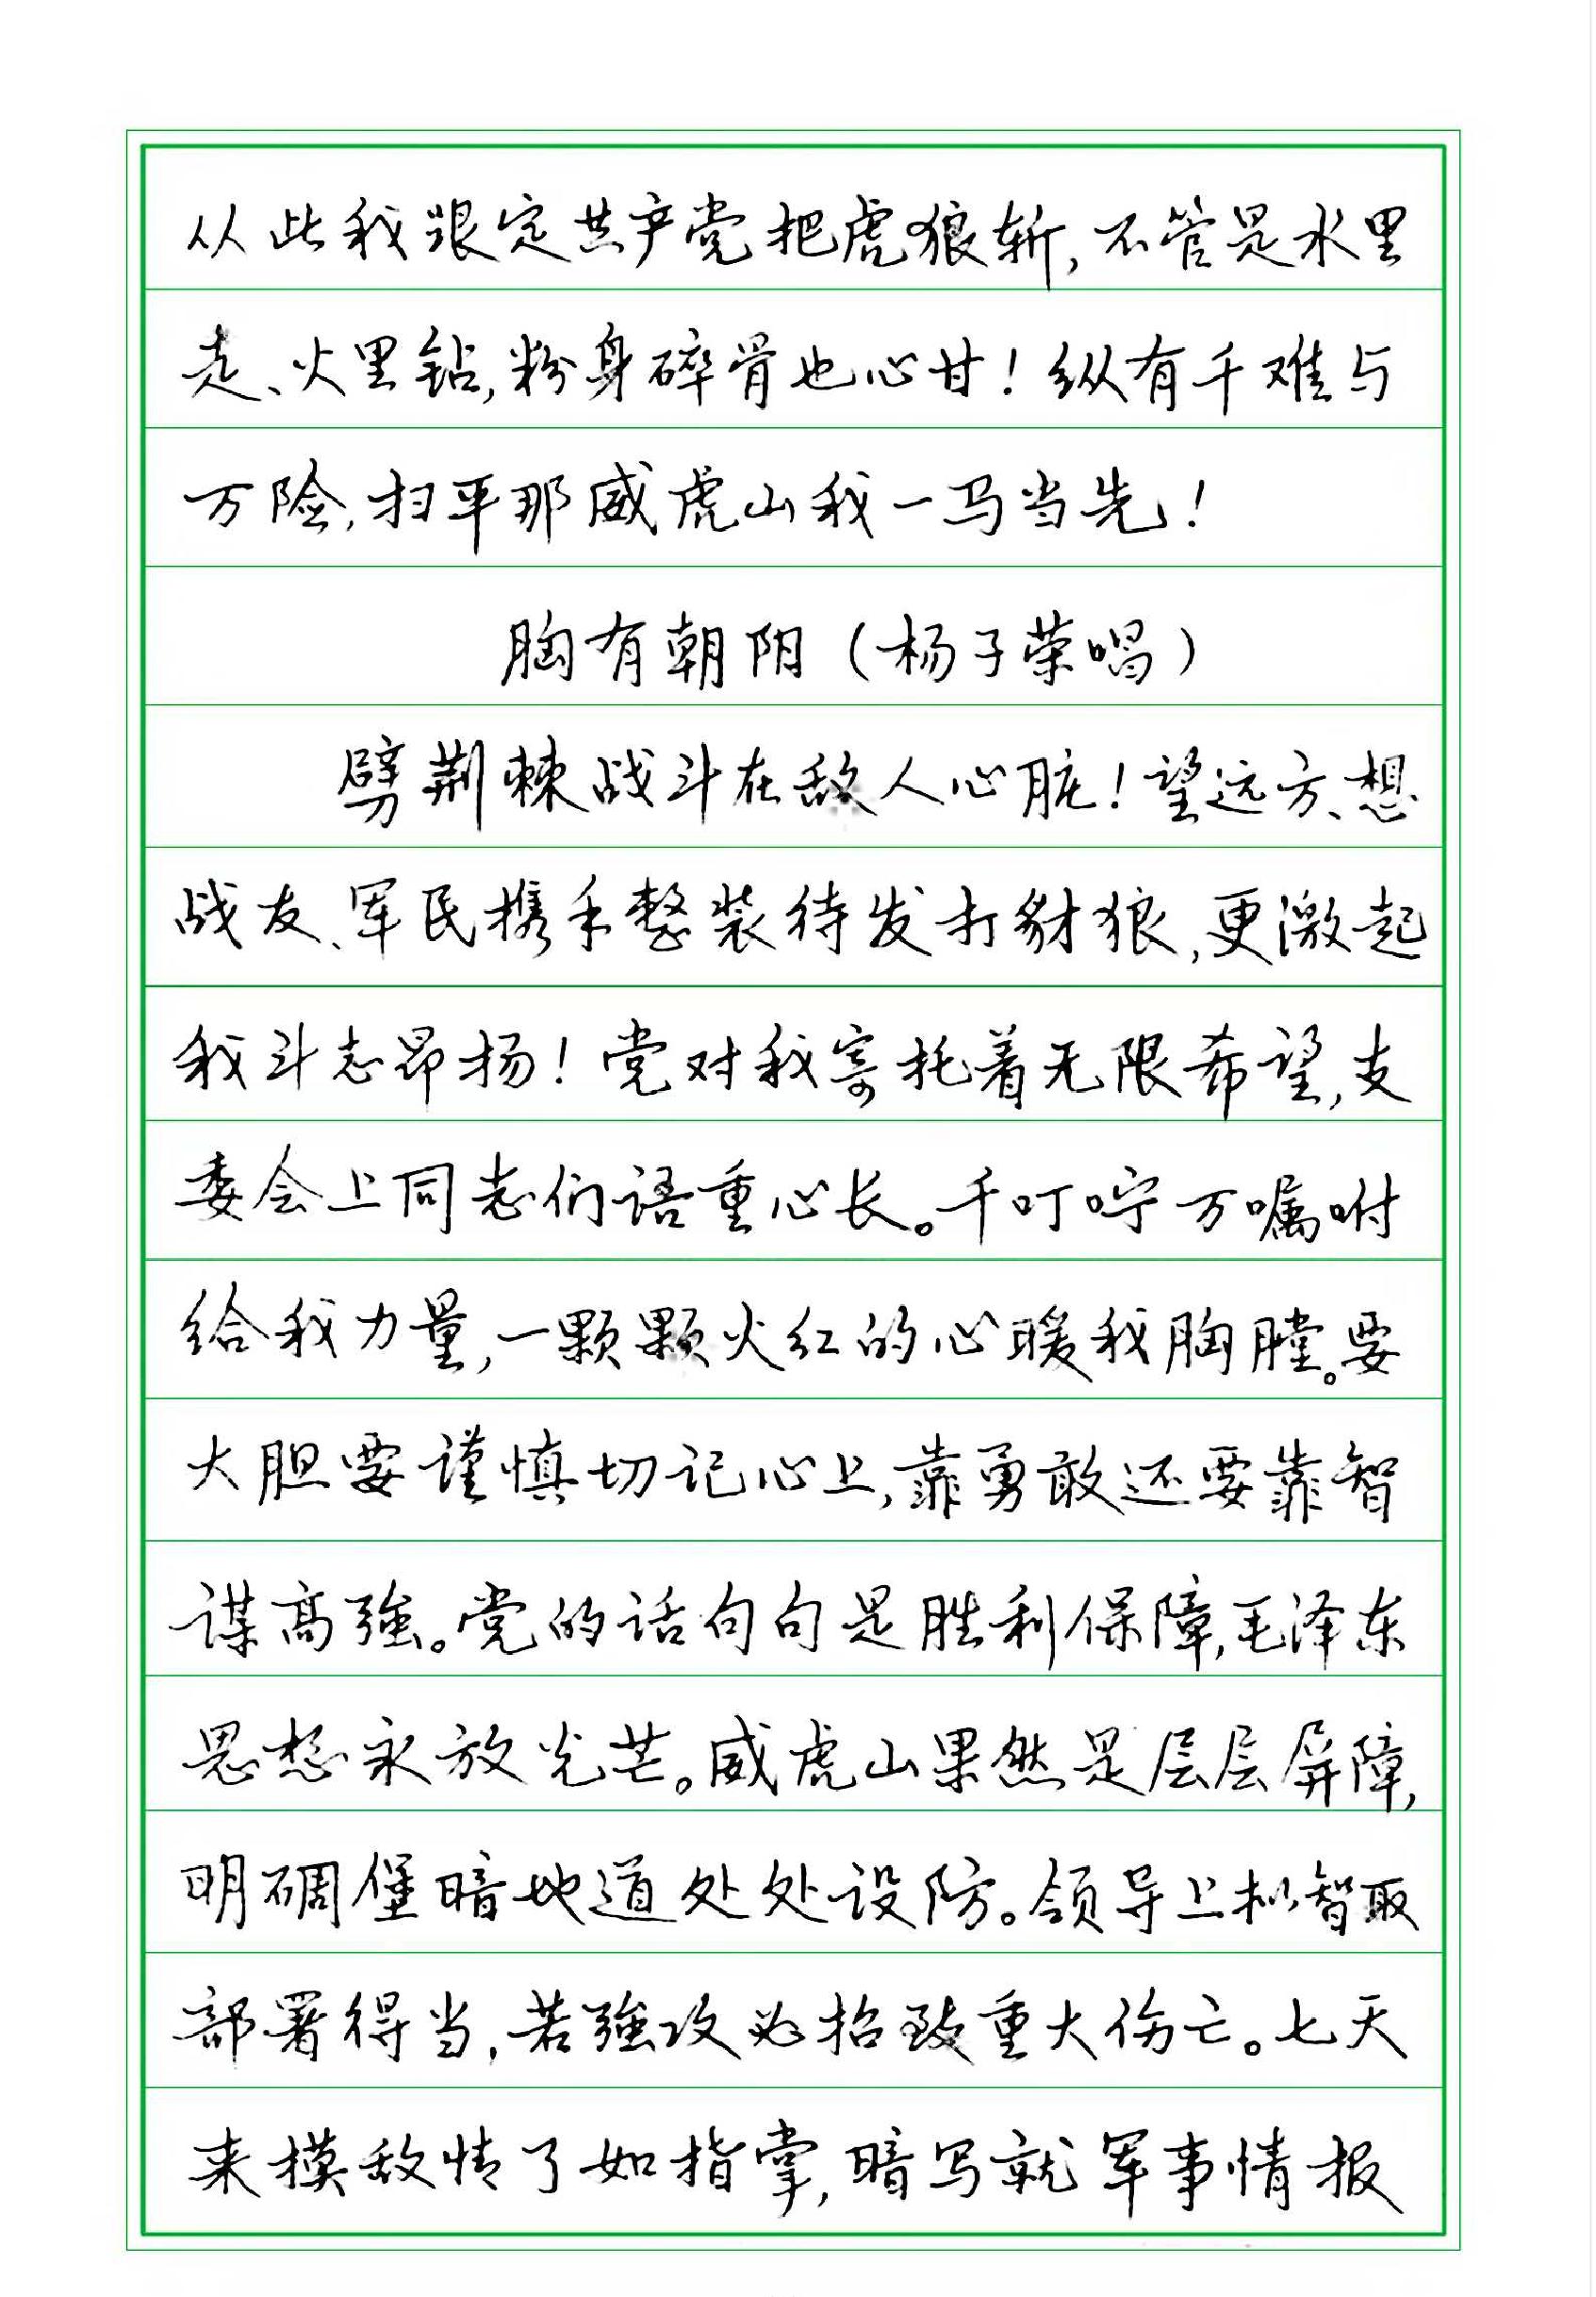 从此我跟定共产党把虎狼斩,不管是水里
走、火里钻,粉身碎骨也心甘!纵有千难与
万险,扫平那威虎山我一马当先!
胸有朝阳(杨子荣唱)
劈荆棘战斗在敌人心脏!望远方、想
战友、军民携手整装待发打豺狼,更激起
我斗志昂扬!党对我寄托着无限希望,支
委会上同志们语重心长。千叮咛万嘱咐
给我力量,一颗颗火红的心暖我胸膛。要
大胆要谨慎切记心上,靠勇敢还要靠智
谋高强。党的话句句是胜利保障,毛泽东
思想永放光芒。威虎山果然是层层屏障,
明碉堡暗地道处处设防。领导上拟智取
部署得当,若强攻必招致重大伤亡。七天
来摸敌情了如指掌,暗写就军事情报